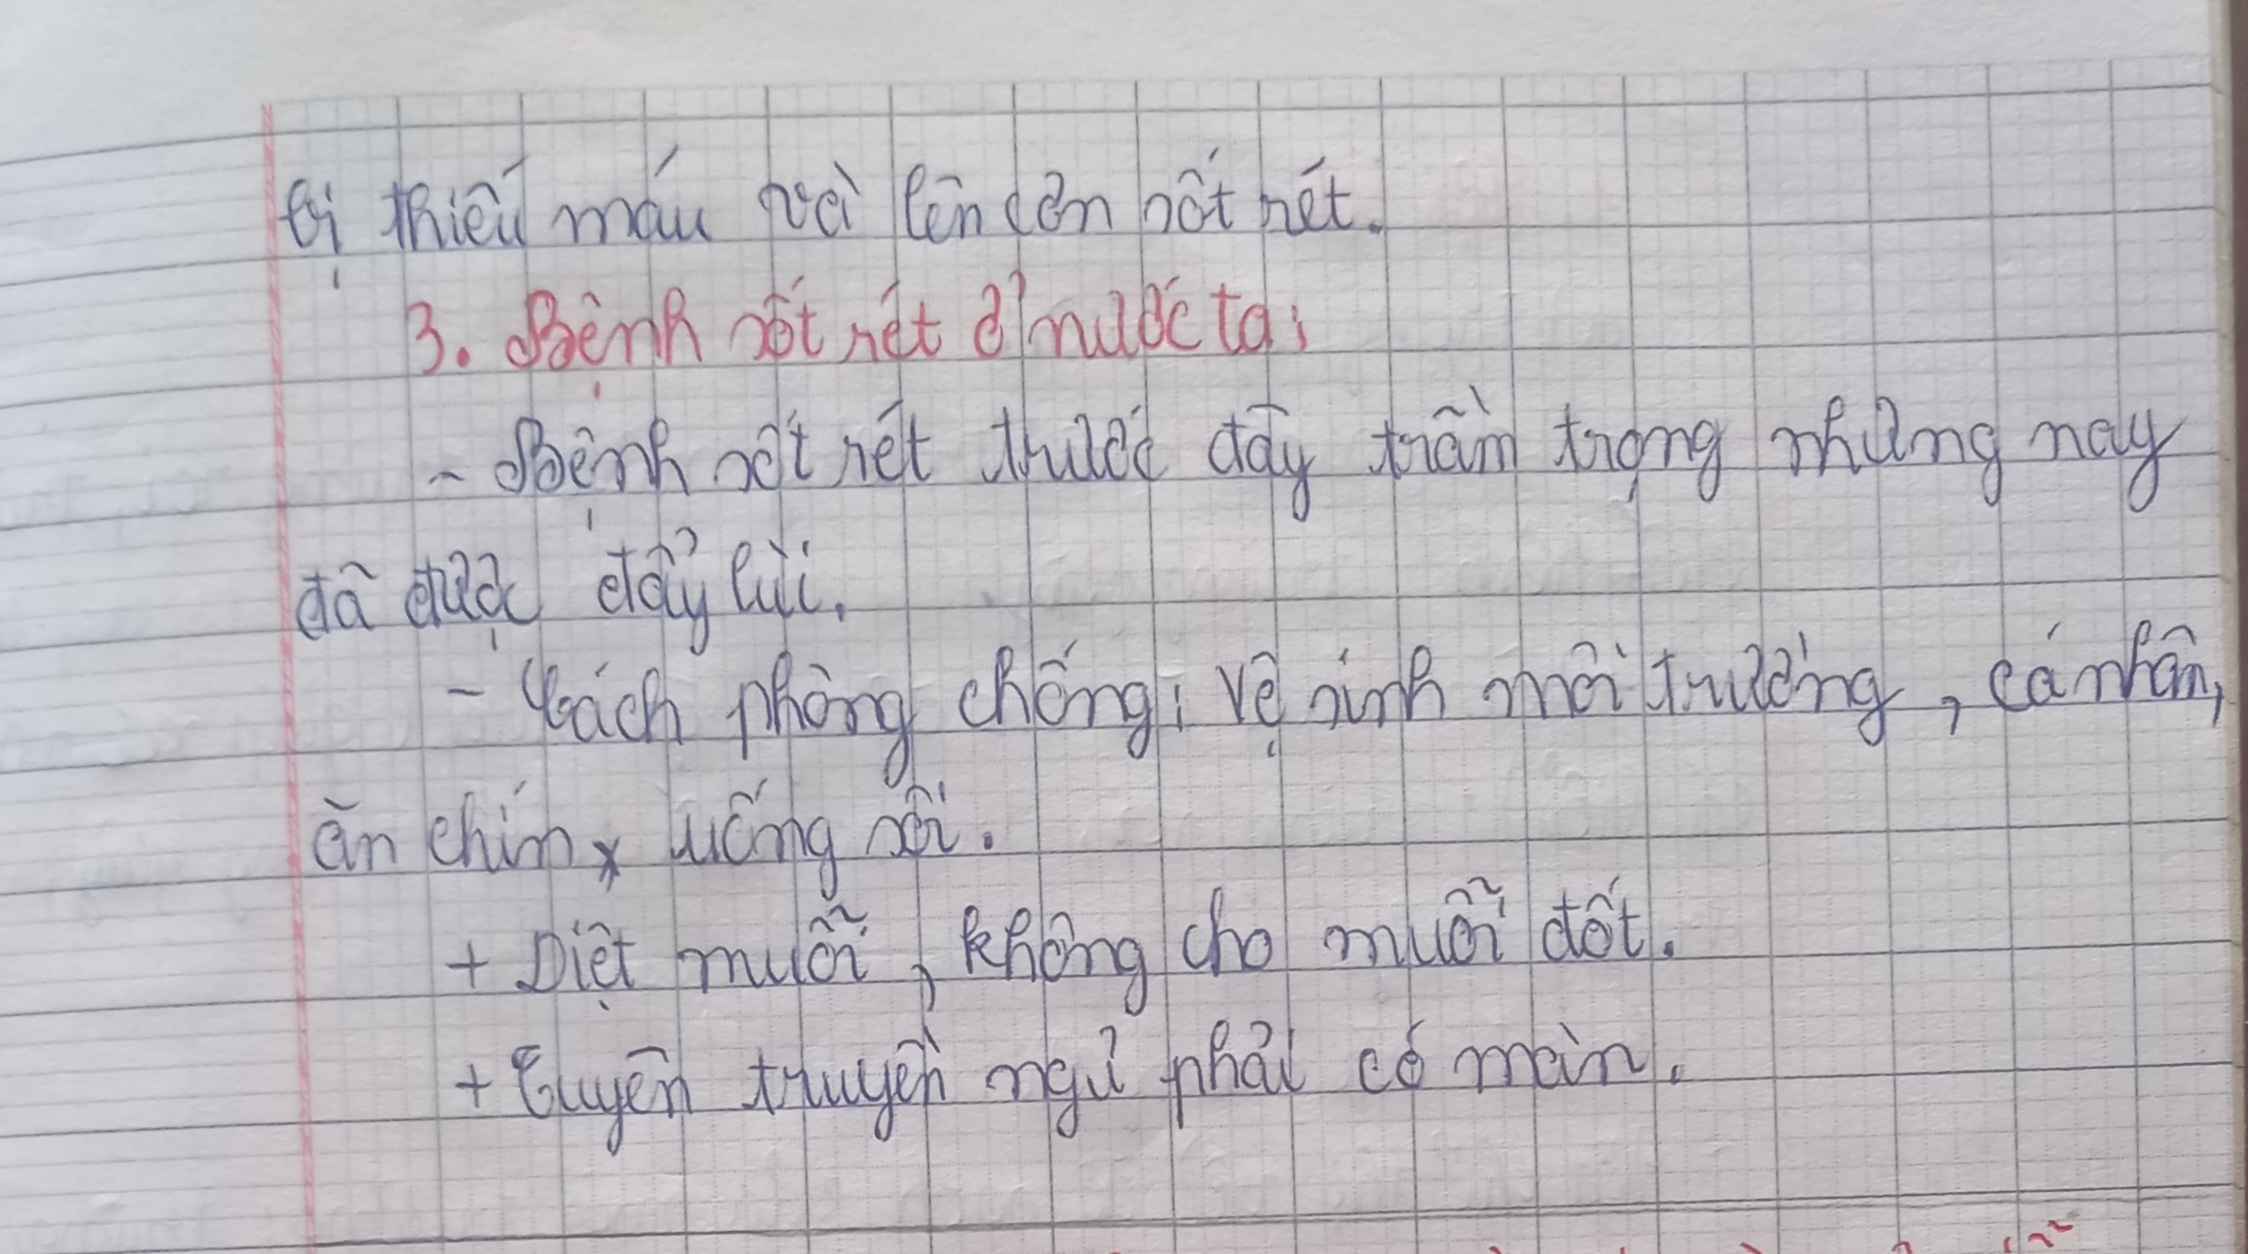 bị thiếu máu và lên cơn sốt rét.
3. Bệnh sốt rét ở nước ta:
- Bệnh sốt rét trước đây trầm trọng nhưng nay
đã được đẩy lùi.
- Cách phòng chống: Vệ sinh môi trường, cá nhân,
ăn chín, uống sôi.
+ Diệt muỗi, không cho muỗi đốt.
+ Tuyên truyền ngủ phải có màn.